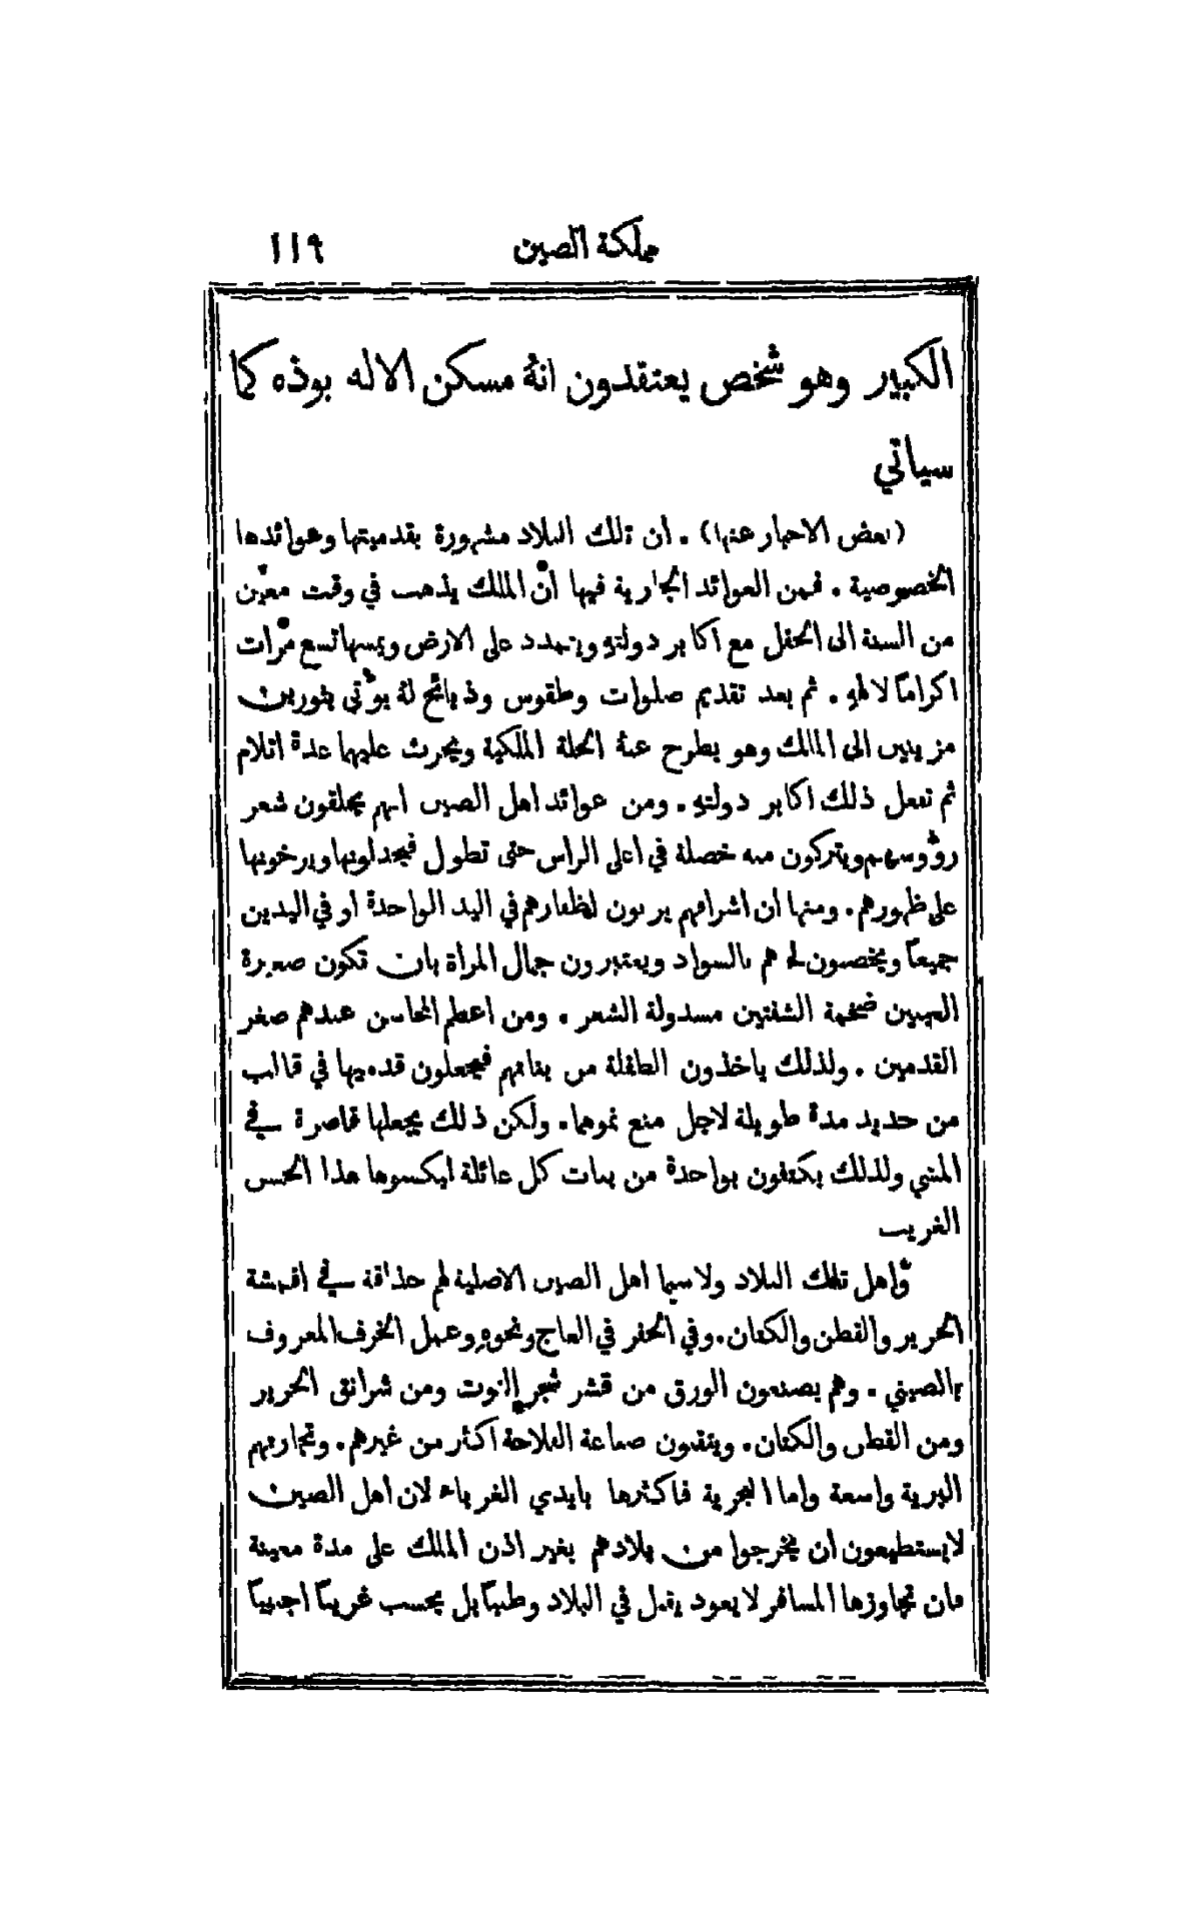 مملكة الصين ١١٩
الكبير وهو شخص يعتقدون انهُ مسكن الاله بوذه كما
سياتي
(بعض الاخبار عنها) . ان تلك البلاد مشهورة بقدميتها وعوائدها
الخصوصية . فمن العوائد الجارية فيها انَّ الملك يذهب في وقت معيَّن
من السنة الى الحقل مع اكابر دولتهِ ويتمدد على الارض ويمسها تسع مرَّات
اكراماً لالههِ . ثم بعد تقديم صلوات وطقوس وذبائح لهُ يوُّتى بثورين
مزينين الى الملك وهو يطرح عنهُ الحلة الملكية ويحرث عليهما عدة اتلام
ثم تفعل ذلك اكابر دولتهِ . ومن عوائد اهل الصين انهم يحلقون شعر
روُّوسهم ويتركون منه خصلة في اعلى الراس حتى تطول فيجدلونها ويرخونها
على ظهورهم . ومنها ان اشرافهم يربون اظفارهم في اليد الواحدة او في اليدين
جميعاً ويخصبون لحاهم بالسواد ويعتبرون جمال المراة بان تكون صغيرة
العينين ضخمة الشفتين مسدولة الشعر . ومن اعظم المحاسن عندهم صغر
القدمين . ولذلك ياخذون الطفلة من بناتهم فيجعلون قدميها في قالب
من حديد مدة طويلة لاجل منع نموهما . ولكن ذلك يجعلها قاصرة في
المشي ولذلك يكتفون بواحدة من بنات كل عائلة ليكسوها هذا الحسن
الغريب
واهل تلك البلاد ولاسيما اهل الصين الاصلية لهم حذاقة في اقمشة
الحرير والقطن والكتان . وفي الحفر في العاج ونحوهِ وعمل الخزف المعروف
بالصيني . وهم يصنعون الورق من قشر شجر التوت ومن شرانق الحرير
ومن القطن والكتان . ويتقنون صناعة الفلاحة اكثر من غيرهم . وتجارتهم
البرية واسعة واما البحرية فاكثرها بايدي الغرباء لان اهل الصين
لا يستطيعون ان يخرجوا من بلادهم بغير اذن الملك على مدة معينة
فان تجاوزها المسافر لا يعود يقبل في البلاد وطنياً بل يحسب غريباً اجنبياً